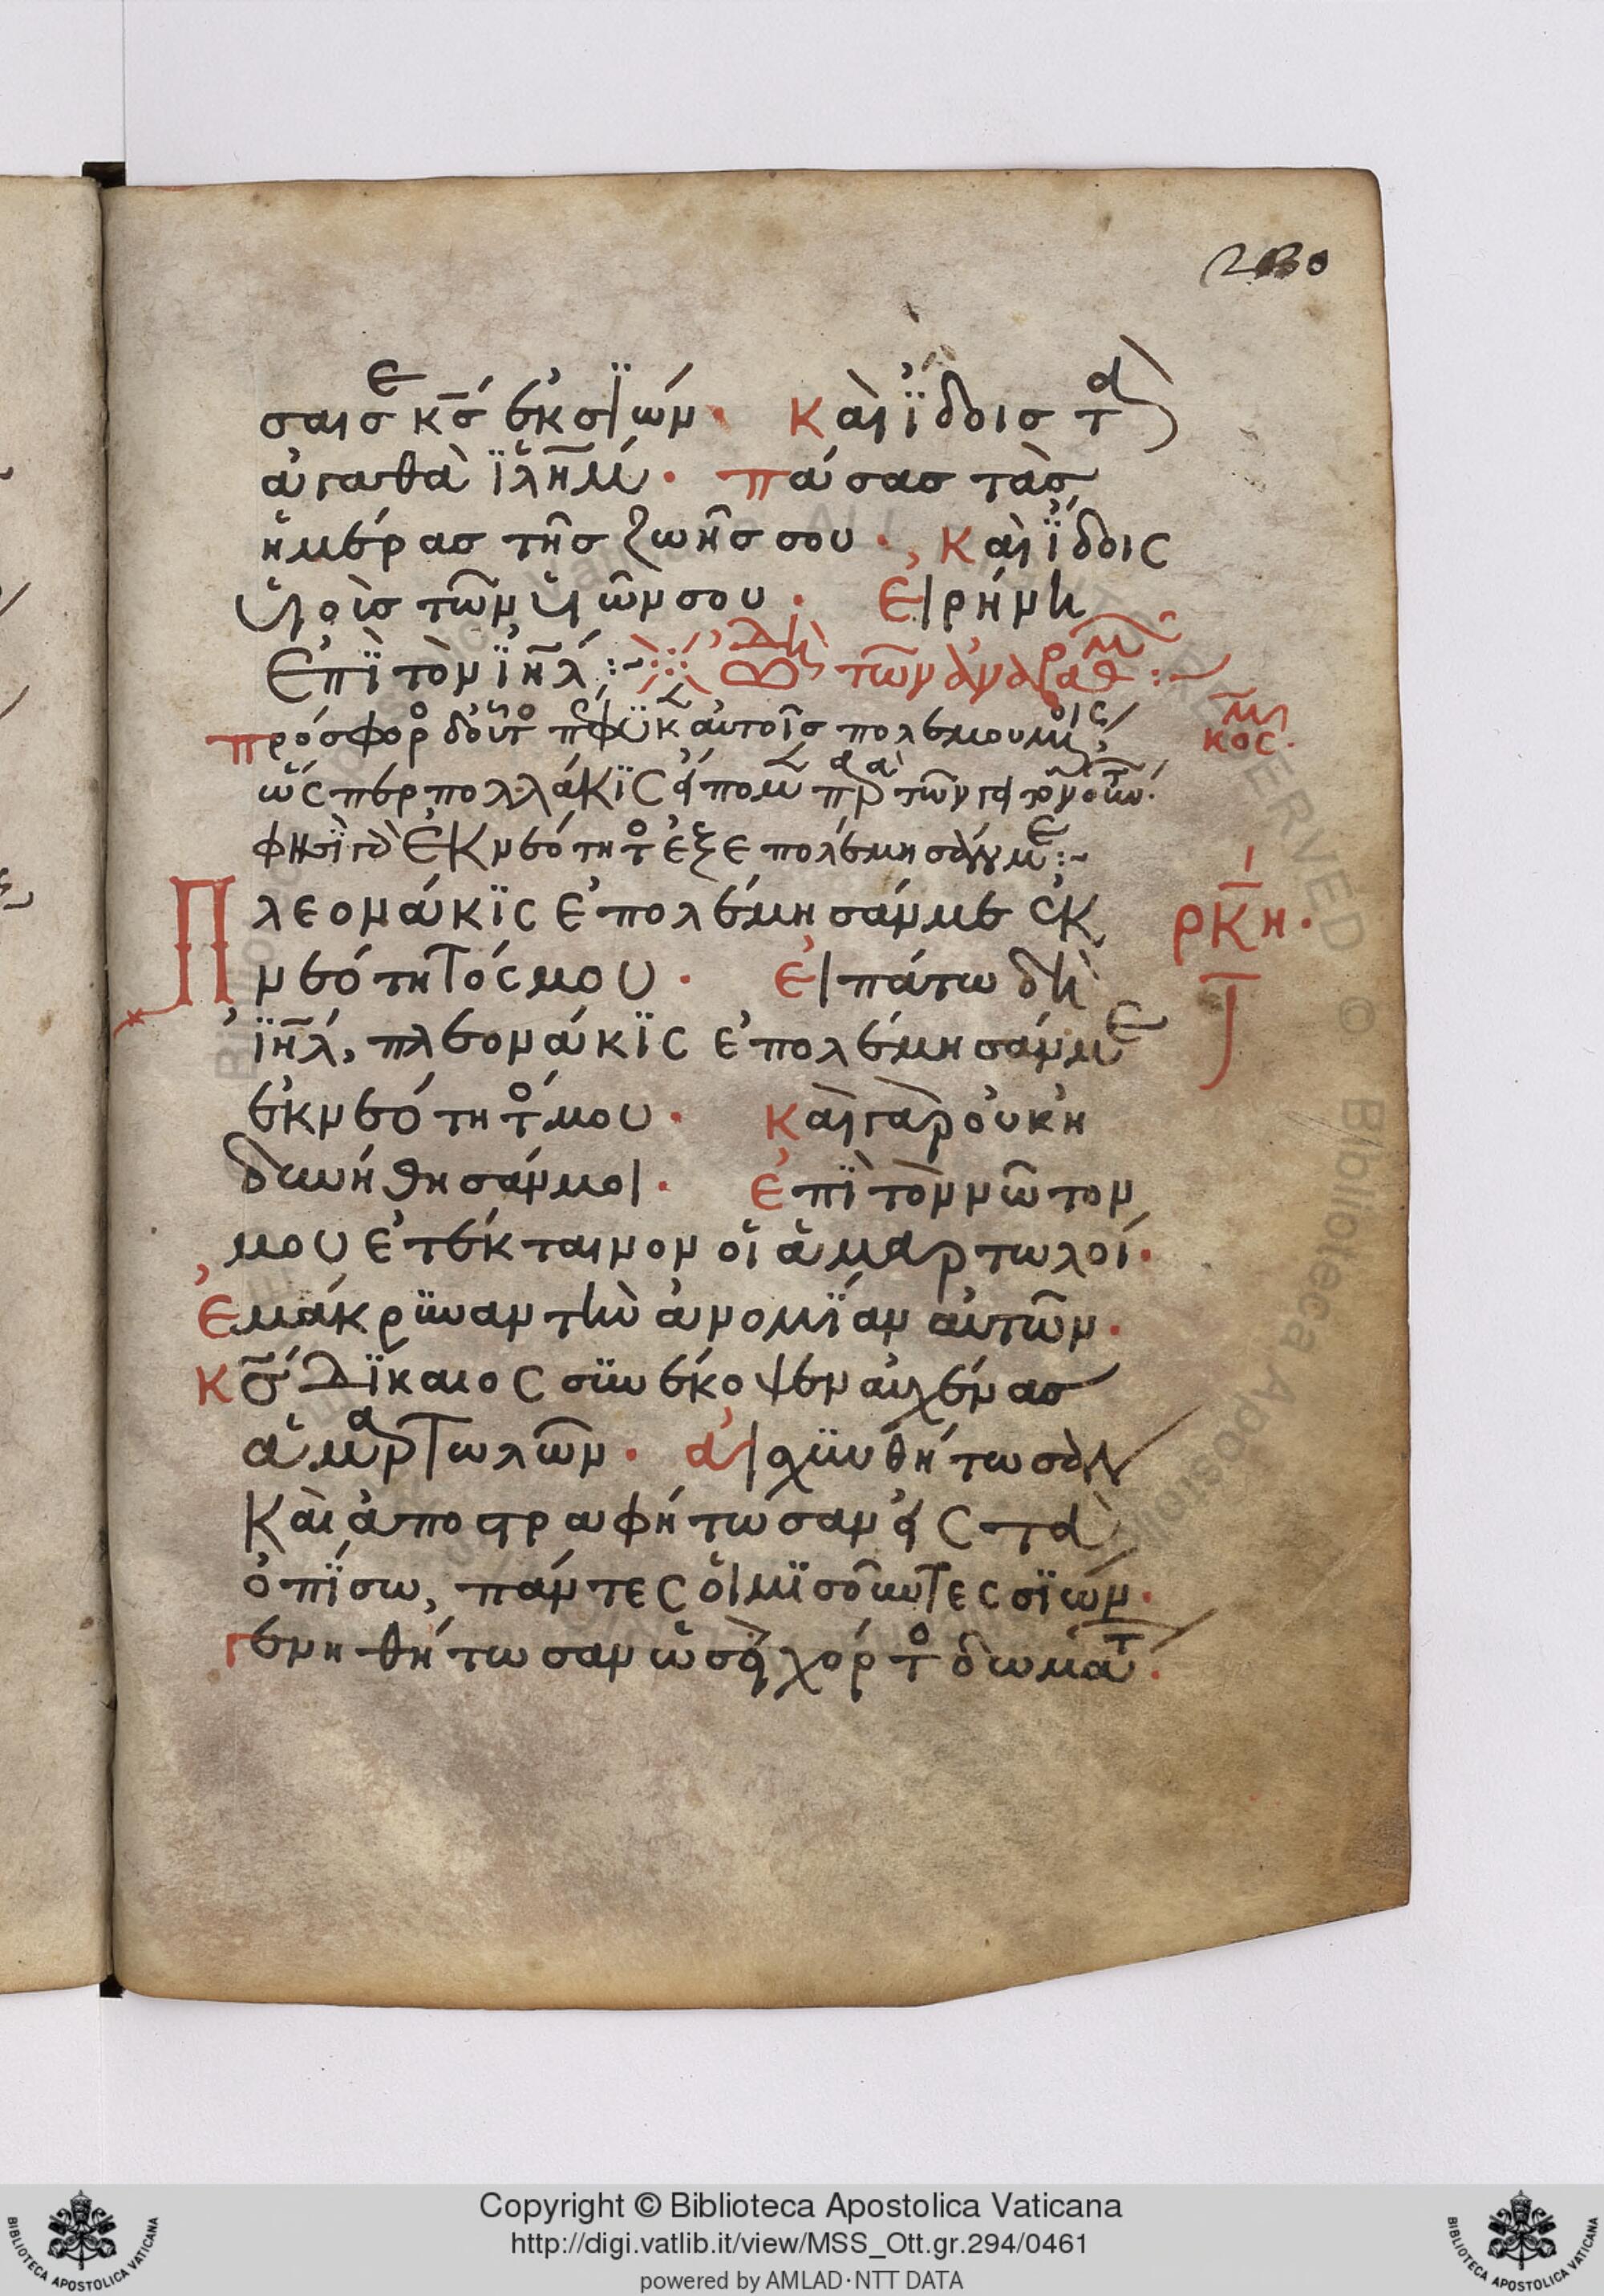 230
σαι σε κς ἐκ σιών· καὶ ἴδοις τὰ
ἀγαθὰ ϊλημ· πάσας τὰς
ἡμέρας τῆς ζωῆς σου· καὶ ἴδοις
υἱοὺς τῶν υἱῶν σου· εἰρήνη
ἐπὶ τὸν ιηλ:~ ὠδὴ τῶν ἀναβαθμ:~
πολεμουμένοις
ὥσπερ πολλάκις
ἐκ νεότητο ἐξεπολέμησάν με:~
Πλεονάκις ἐπολέμησάν με ἐκ
νεότητός μου· εἰπάτω δὴ
ιηλ, πλεονάκις ἐπολέμησάν με
ἐκ νεότητο μου· καὶ γὰρ οὐκ ἠ
δυνήθησάν μοι· ἐπὶ τὸν νῶτον
μου ἐτέκταινον οἱ ἁμαρτωλοί·
ἐμάκρυναν τὴν ἀνομίαν αὐτῶν·
κς δίκαιος συνέκοψεν αὐχένας
ἁμαρτωλῶν· αἰσχυνθήτωσαν
καὶ ἀποστραφήτωσαν εἰς τὰ
ὀπίσω, πάντες οἱ μισοῦντες σιών·
γενηθήτωσαν ὡσεὶ χόρτο δωμάτ·
ρκη·
Copyright © Biblioteca Apostolica Vaticana
http://digi.vatlib.it/view/MSS_Ott.gr.294/0461
powered by AMLAD·NTT DATA
BIBLIOTECA APOSTOLICA VATICANA
BIBLIOTECA APOSTOLICA VATICANA